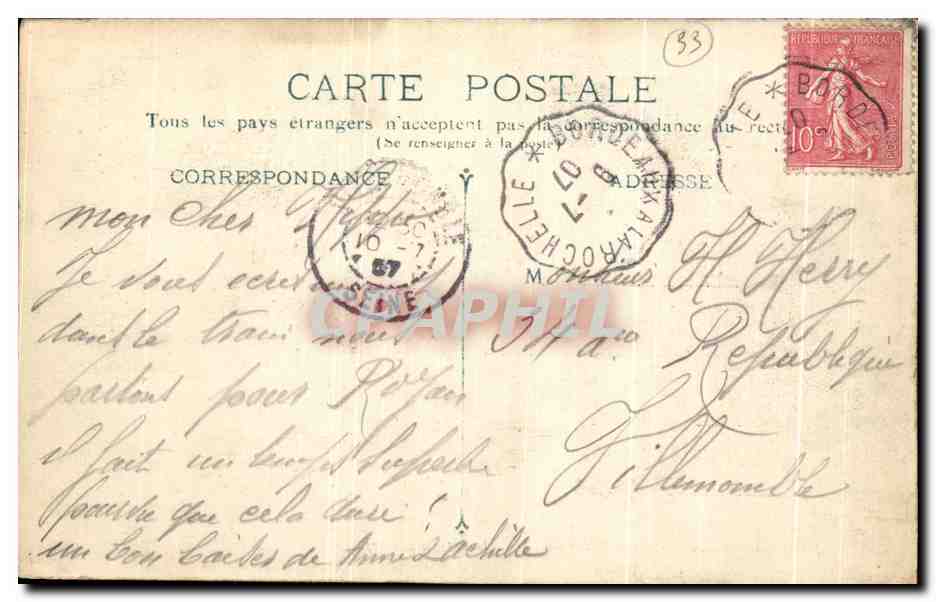 33
CARTE POSTALE
Tous les pays étrangers n'acceptent pas la correspondance au recto
(Se renseigner à la poste)
CORRESPONDANCE
ADRESSE
RÉPUBLIQUE FRANÇAISE
10
E * BORDE
BORDEAUX A LA ROCHELLE *
9 -7 07
10 -7 07
SEINE
CPAPHIL
mon cher
Je vous ecris
dans le train nous
partons pour Royan
il fait un temps superbe
pourvu que cela dure !
un bon baiser de Anne & achille
Monsieur H. Henry
34 av. Republique
Villemomble